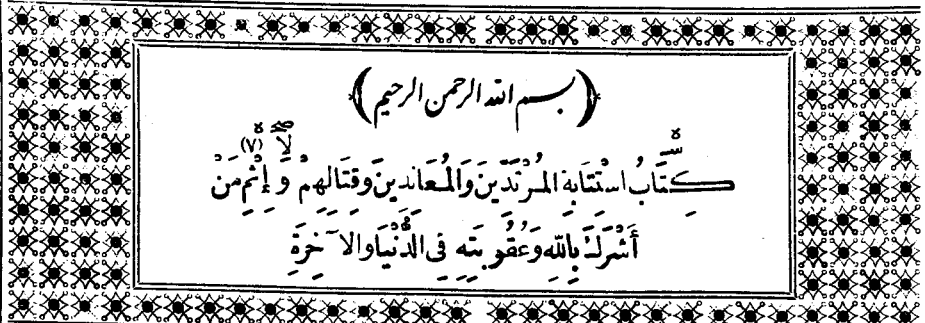 ﴿ بسم الله الرحمن الرحيم ﴾
كِتَابُ اسْتِتَابَةِ الْمُرْتَدِّينَ وَالْمُعَانِدِينَ وَقِتَالِهِمْ وَإِثْمِ مَنْ (٧)
أَشْرَكَ بِاللهِ وَعُقُوبَتِهِ فِي الدُّنْيَا وَالْآخِرَةِ